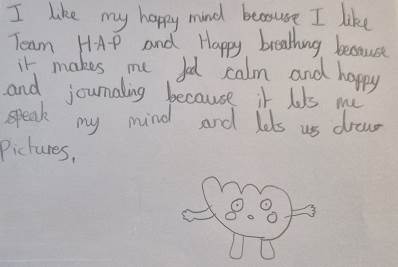 I like my happy mind because I like
Team H-A-P and Happy breathing because
it makes me feel calm and happy
and journaling because it lets me
speak my mind and lets us draw
Pictures.